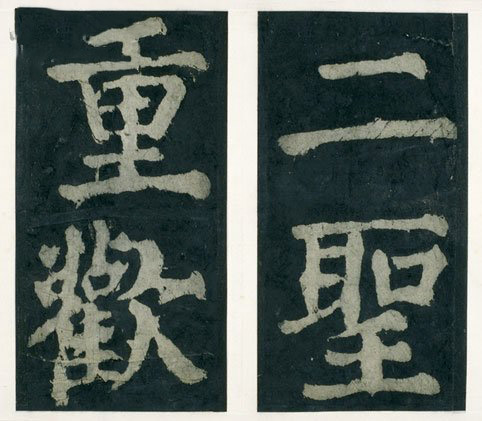 二聖
重歡